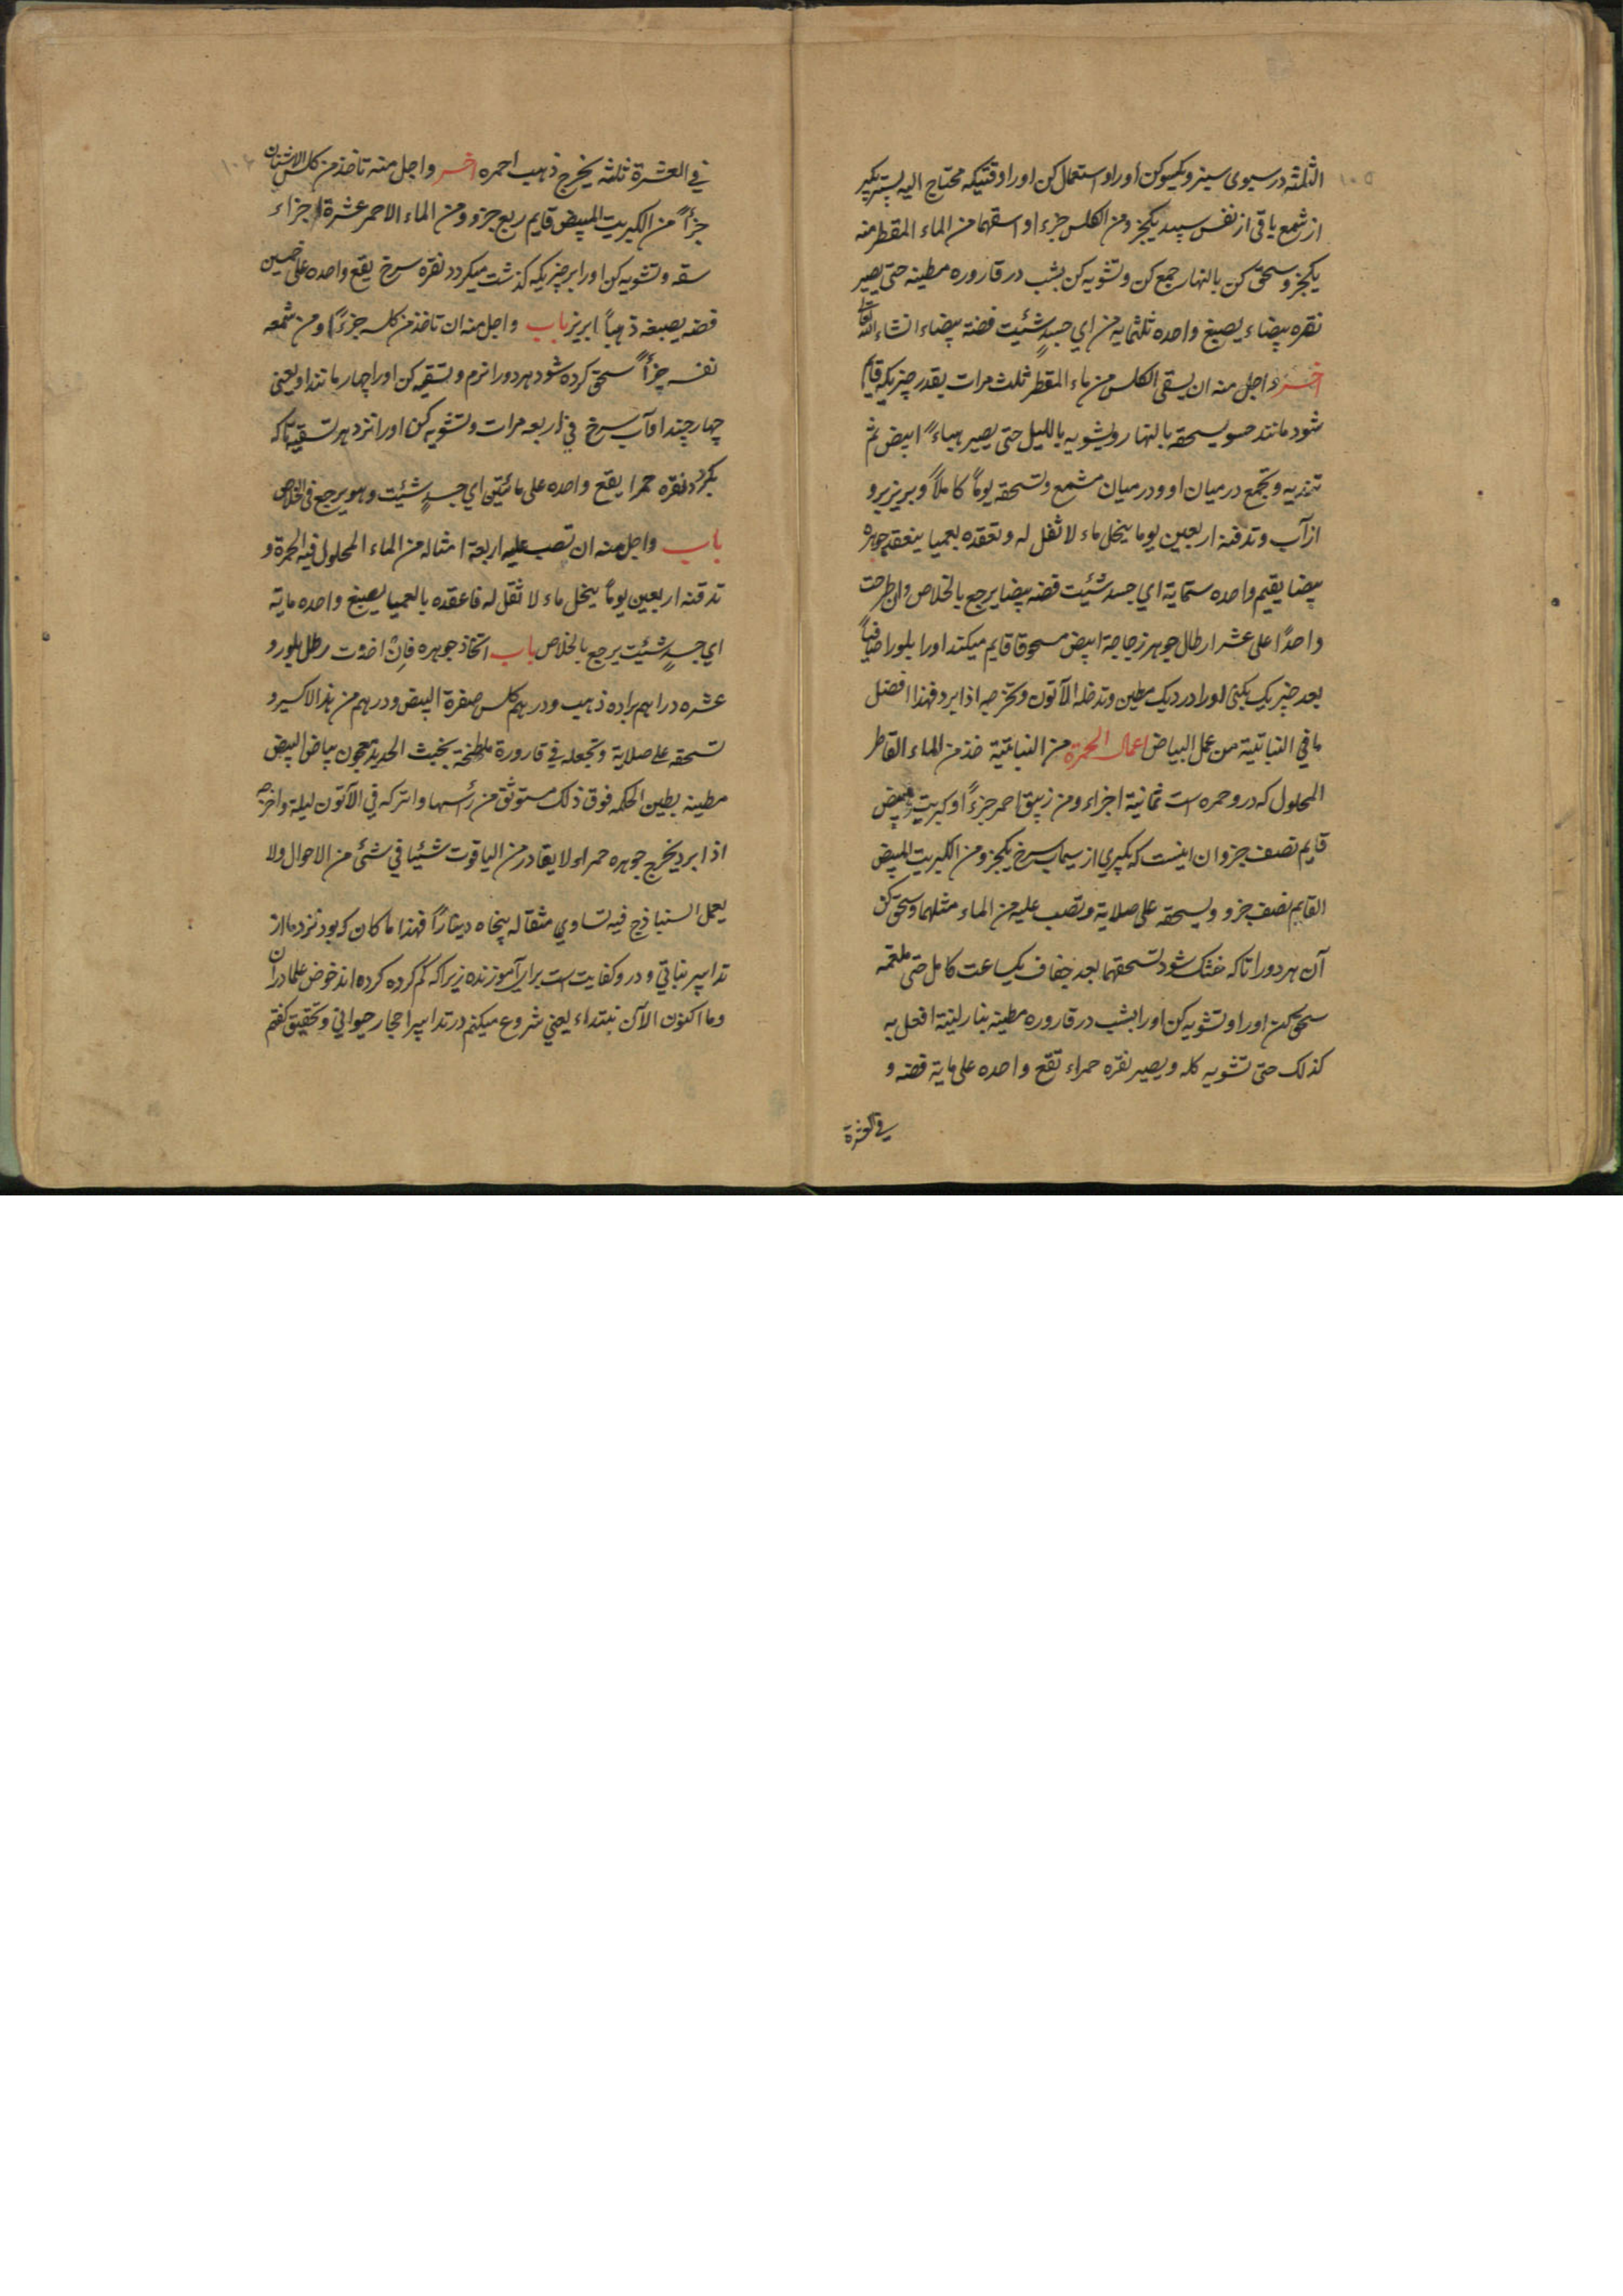 ۱۰۵
الثلثه در سیوی سبز و یکسو کن اورا و استعمال کن اورا وقتیکه محتاج الیه پس بگیر
از شمع باقی از نفس سپید یکجزو من الکلس جزءا و اسقهما من الماء المقطر منه
یکجزو سحق کن بالنهار جمع کن و تشویه کن بشب در قاروره مطینه حتی یصیر
نقره بیضاء یصبغ واحده ثلثمایه من ای جسدٍ شئیت فضه بیضاء انشاء الله تعالی
اخر واجل منه ان یسقی الکلس من ماء المقطر ثلث مرات بقدر چیزیکه قایم
شود مانند حسو یسحقه بالنهار و یشویه باللیل حتی یصیر هباءً ابیض ثم
تندیه و تجمع درمیان او و درمیان مشمع و تسحقه یوماً کاملاً و بریز برو
از آب و تدفنه اربعین یوما ینحل ماء لا ثفل له و تعقده بعمیا ینعقد جوهره
بیضا یقیم واحده ستمایة ای جسد شئیت فضه بیضا یرجع بالخلاص وان طرحت
واحدًا علی عشر ارطال جوهر زجاجة ابیض مسحوقا قایم میکند اورا بلورا صافیاً
بعد چیزیک بکنی اورا در دیک مطین و تدخله الآتون و تخرجه اذا برد فهذا افضل
ما فی النباتیة من عمل البیاض اعمال الحمرة من النباتیة خذ من الماء القاطر
المحلول که درو حمره است ثمانیة اجزاء و من زیبق احمر جزءً او کبریت مبیض
قایم نصف جزو ان اینست که بگیری از سیماب سرخ یکجزو من الکبریت المبیض
القایم نصف جزو و یسحقه علی صلایة و تصب علیه من الماء مثلهما و سحق کن
آن هر دورا تاکه خشک شود تسحقهما بعد جفاف یکساعت کامل حتی
سحق کن اورا و تشویه کن اورا بشب در قاروره مطینه بنار لینة افعل به
کذلک حتی تشویه کله و یصیر نقره حمراء تقع واحده علی مایة فضه و
فی العشرة
۱۰۶
فی العشرة ثلثه یخرج ذهب احمره اخر واجل منه تاخذ من کلس الاشنان
جزأً من الکبریت المبیض قایم ربع جزو و من الماء الاحمر عشرة اجزاء
سقه و تشویه کن اورا بر چیزیکه گذشت میکردد نقره سرخ یقع واحده علی خمسین
فضه یصبغه ذهباً ابریز باب واجل منه ان تاخذ من کلسه جزءً و من شمعه
نفسه جزأً سحق کرده شود هر دورا نرم و تسقیه کن اورا چهار مانند او یعنی
چهار چند او آب سرخ فی اربعه مرات و تشویه کن اورا نزد هر تسقیه تاکه
بکردد نقره حمرا یقع واحده علی مائتین ای جسدٍ شئیت وهو یرجع فی الخلاص
باب واجل منه ان تصب علیه اربعة امثاله من الماء المحلول فیه الحمرة و
تدفنه اربعین یوماً ینحل ماء لا ثفل له فاعقده بالعمیا یصبغ واحده مایة
ای جسدٍ شئیت یرجع بالخلاص باب اتخاذ جوهره فان اخذت رطل بلور و
عشره دراهم براده ذهب و درهم کلس صفرة البیض و درهم من هذ الاکسیر و
تسحقه علی صلایة و تجعله فی قارورة ملطخة بخبث الحدید معجون ببیاض البیض
مطینه بطین الحکمه فوق ذلک مستوثق من رأسها و اترکه فی الآتون لیلة و اخرجه
اذا برد یخرج جوهره حمراء لا یغادر من الیاقوت شئیا فی شئ من الاحوال ولا
یعمل السنباذج فیه تساوی مثقاله پنجاه دیناراً فهذا ما کان که بود نزد ما از
تدابیر نباتی و درو کفایت است برای آموزنده زیرا که کم کرده کرده اند خوض علما دران
و ما اکنون الآن نبتداء یعنی شروع میکنم در تدابیر احجار حیوانی و تحقیق کفتم